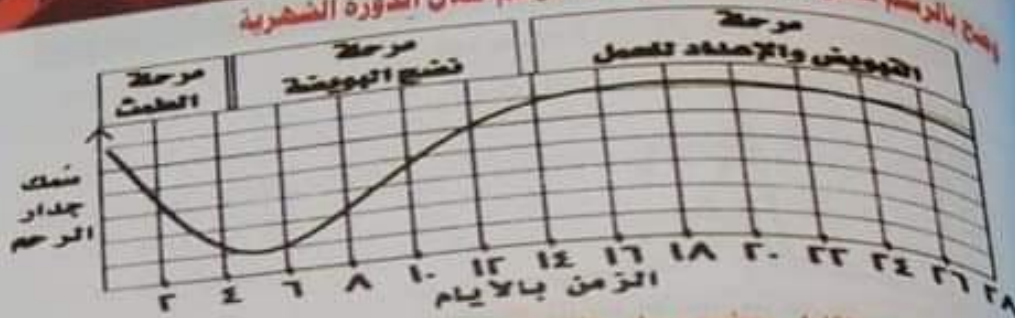 وضح بالرسم
الدورة الشهرية
مرحلة
الطمث
مرحلة
نضج البويضة
مرحلة
التبويض والإعداد للحمل
سمك
جدار
الرحم
٢ ٤ ٦ ٨ ١٠ ١٢ ١٤ ١٦ ١٨ ٢٠ ٢٢ ٢٤ ٢٦ ٢٨
الزمن بالأيام